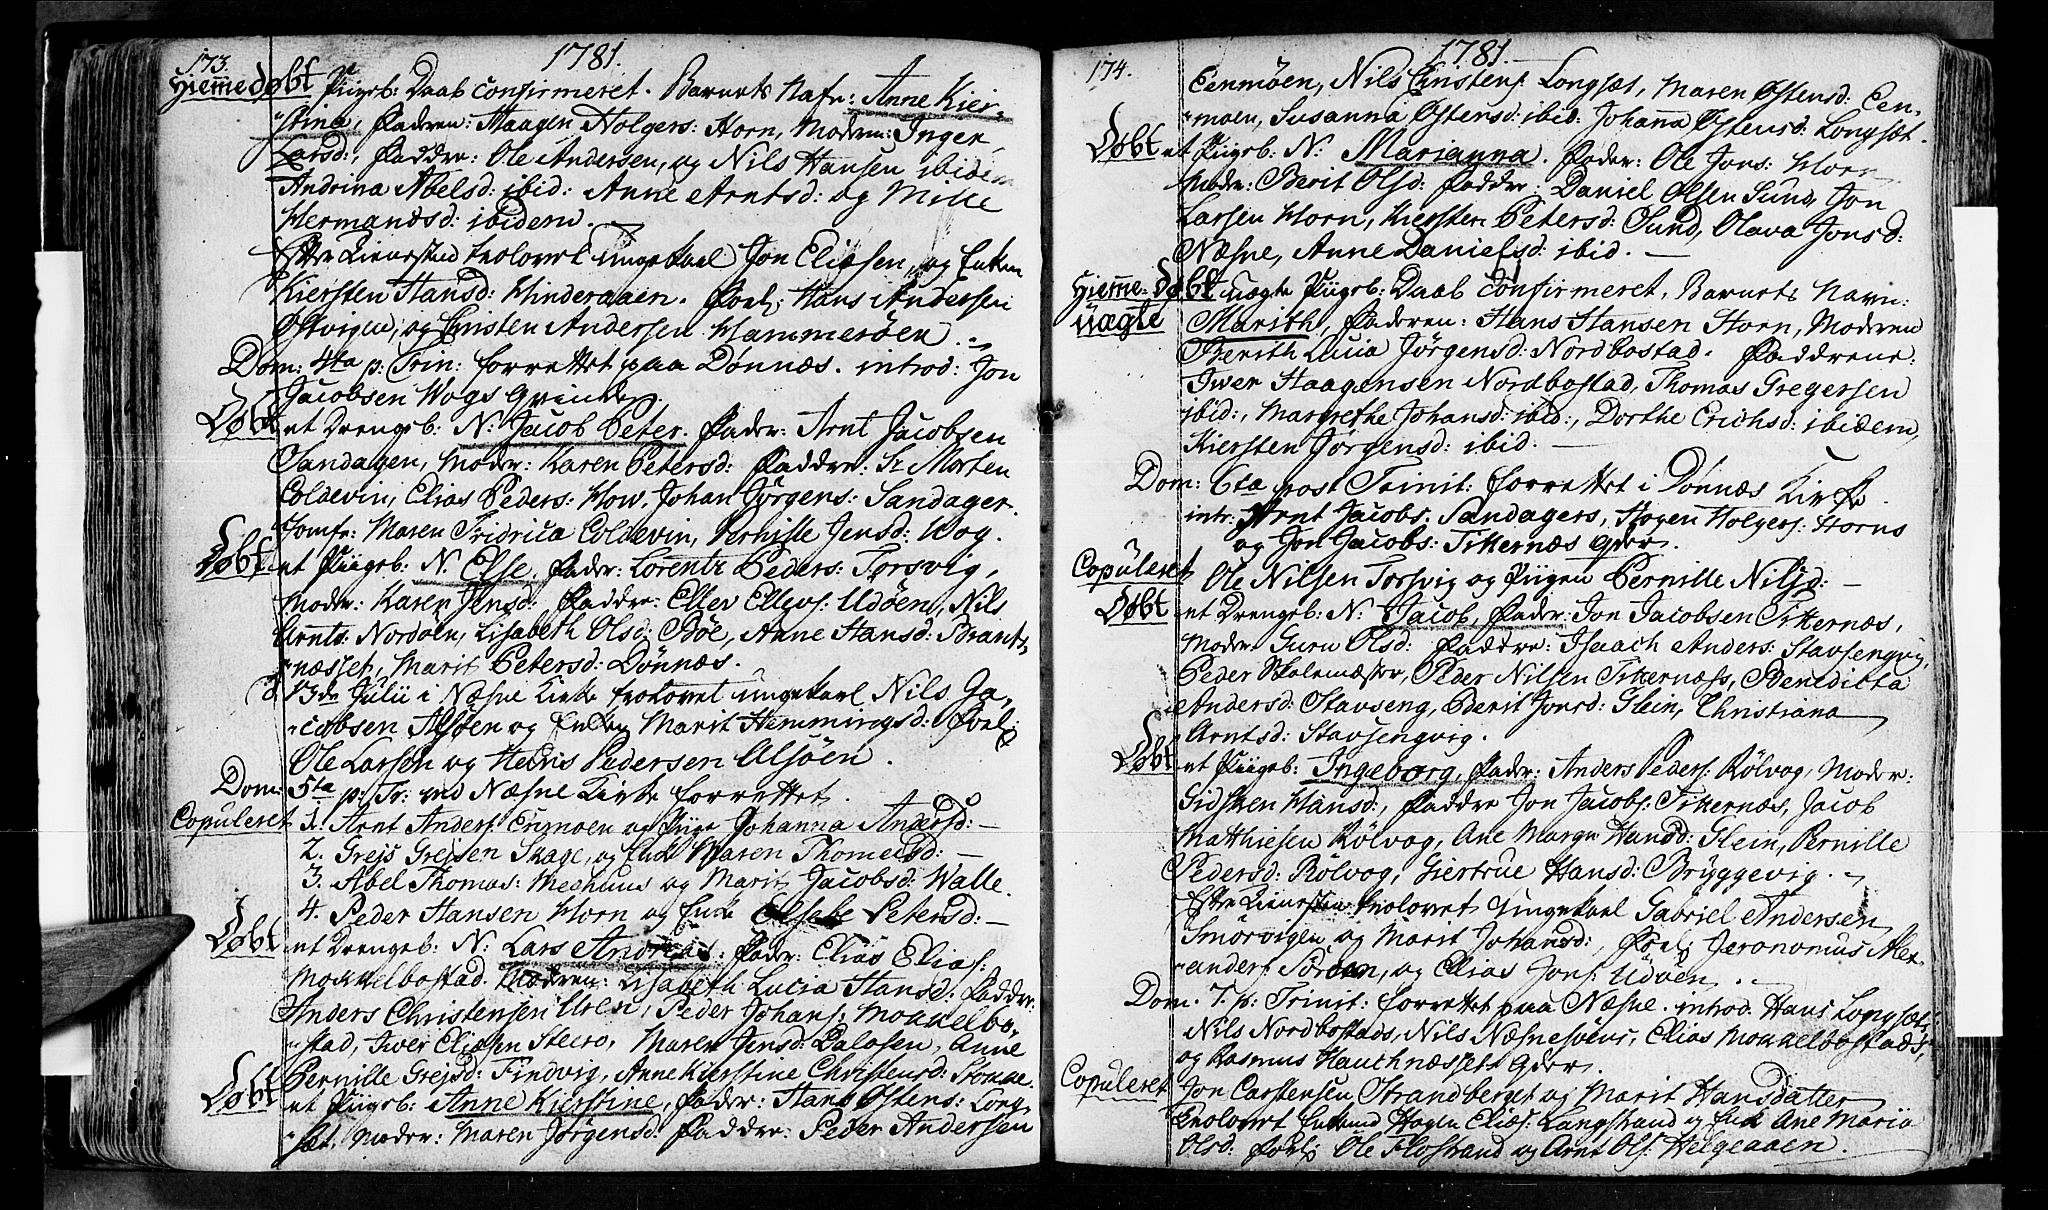 173.
1781.
Hiemedøbt Piigeb: Daab Confirmeret. Barnets Nafn: Anne Kier-
stina, Faderen: Haagen Holgers: Horn, Moderen: Inger
Larsd:, Faddre: Ole Andersen, og Nils Hansen ibidem
Andrina Abelsd: ibid: Anne Arntsd: og Mille
Hermansd: ibidem.
Efter Tienesten trolovet ungekarl Jon Eliæsen, og Enken
Kiersten Hansd: Hinderaaen. Forl: Hans Andersen
Østvigen, og Christen Andersen Hammerøen.
Dom: 4ta p: Trin: forrettet paa Dønnæs. introd: Jon
Jacobsen Wogs Qvinde.
Døbt et Drengeb: N: Jacob Peter. Fader: Arnt Jacobsen
Sandagen, Moder: Karen Petersd: Faddre: Sr Morten
Coldevin, Elias Peders: How, Johan Jørgens: Sandager.
Jomfr: Maren Fridrica Coldevin, Pernille Jensd: Wog.
Døbt et Piigeb: N. Else, Fader: Lorentz Peders: Torsvig,
Moder: Karen Jensd:, Faddre: Eller Ellevs: Udøen, Nils
Arnts: Nordøen, Lisabeth Olsd: Bøe, Anne Hansd: Brant-
næsset, Marit Petersd: Dønnæs.
d 13de Julii i Næsne Kirke trolovet ungekarl Nils Ja-
cobsen Alsøen og Enken Marit Hemmingsd: Forl:
Ole Larsen og Hendris Pedersen Alsøen.
Dom: 5ta p: Tr: ved Næsne Kirke forrettet.
Copuleret 1. Arnt Anders: Enmoen og Pige Johanna Andersd:
2. Grejs Grejsen Skage, og Enke Maren Thomesd:
3. Abel Thomas: Mehuus og Marit Jacobsd: Walle.
4. Peder Hansen Horn og Enke Petersd:
Døbt et Drengeb: N: Lars Andreas. Fader: Elias Elias:
Mokkelbostad. Moderen: Lisabeth Lucia Hansd: Faddre:
Anders Christensen, Peder Johans: Mokkelbo-
stad, Iwer Eliæsen Stecro, Maren Jensd: Dalosen, Anne
Pernille Grejsd: Findvig, Anne Kierstine Christensd:
Døbt et Piigeb: Anne Kierstine, Fader: Hans Østens: Long-
sæt, Moder: Maren Jørgensd: Faddre: Peder Andersen
174.
1781.
Eenmøen, Nils Cristens: Longsæt, Maren Østensd: Een-
moen, Susanna Østensd: ibid: Johanna Østensd: Longsæt.
Døbt et Piigeb: N: Marianna. Fader: Ole Jons: Horn
Moder: Berit Olsd: Faddre: Daniel Olsen Sund, Jon
Larsen Horn, Kiersten Petersd: Sund, Olava Jonsd:
Næsne, Anne Danielsd: ibid.
Hieme-døbt uægte Piigeb: Daab Confirmeret, Barnets Navn:
uægte Marith, Faderen: Hans Hansen Horn, Moderen
Berith Lucia Jørgensd: Nordbostad. Faddrene:
Iwer Haagensen Nordbostad, Thomas Gregersen
ibid:, Margrethe Johansd: ibid:, Dorthe Erichsd: ibidem,
Kiersten Jørgensd: ibid.
Dom: 6ta post Trinit: forrettet i Dønnæs Kirke.
intr: Arnt Jacobs: Sandagers, Hagen Holgers: Horns
og Jon Jacobs: Tikernæs Qder.
Copuleret Ole Nilsen Torsvig og Piigen Pernille Nilsd:
Døbt et Drengeb: N: Jacob, Fader: Jon Jacobsen Tikernæs,
Moder: Guru Olsd: Faddre: Isaach Anders: Stavsengvig,
Peder Skolemæster, Peder Nilsen Tikernæss, Benedicta
Andersd: Stavseng, Berit Jonsd: Glein, Christiana
Arntsd: Stavsengvig.
Døbt et Piigeb: Ingeborg, Fader: Anders Peders: Rölvog, Moder:
Sidsken Hansd:, Faddre Jon Jacobs: Tikernæs, Jacob
Matthiesen Rölvog, Ane Margr: Hansd: Glein, Pernille
Pedersd: Rölvog, Giertrue Hansd: Bryggevig.
Efter Tienesten trolovet Ungekarl Gabriel Andersen
Smörvigen og Marit Johansd:, Forl: Jeronomus Alex-
anders:, og Elias Jons: Udöen.
Dom. 7. p: Trinit: forrettet paa Næsne. introd: Hans Longsæts
Nils Nordbostads, Nils Næsnesvens, Elias Mokkelbostads,
og Rasmus Hauchnæssets Qder.
Copuleret Jon Carstensen Strandberget og Marit Hansdatter
Trolovet Enkemd Hagen Elies: Langstrand og Enke Ane Maria
Olsd: Forl: Ole Flostrand og Arnt Ols: Helgeaaen.